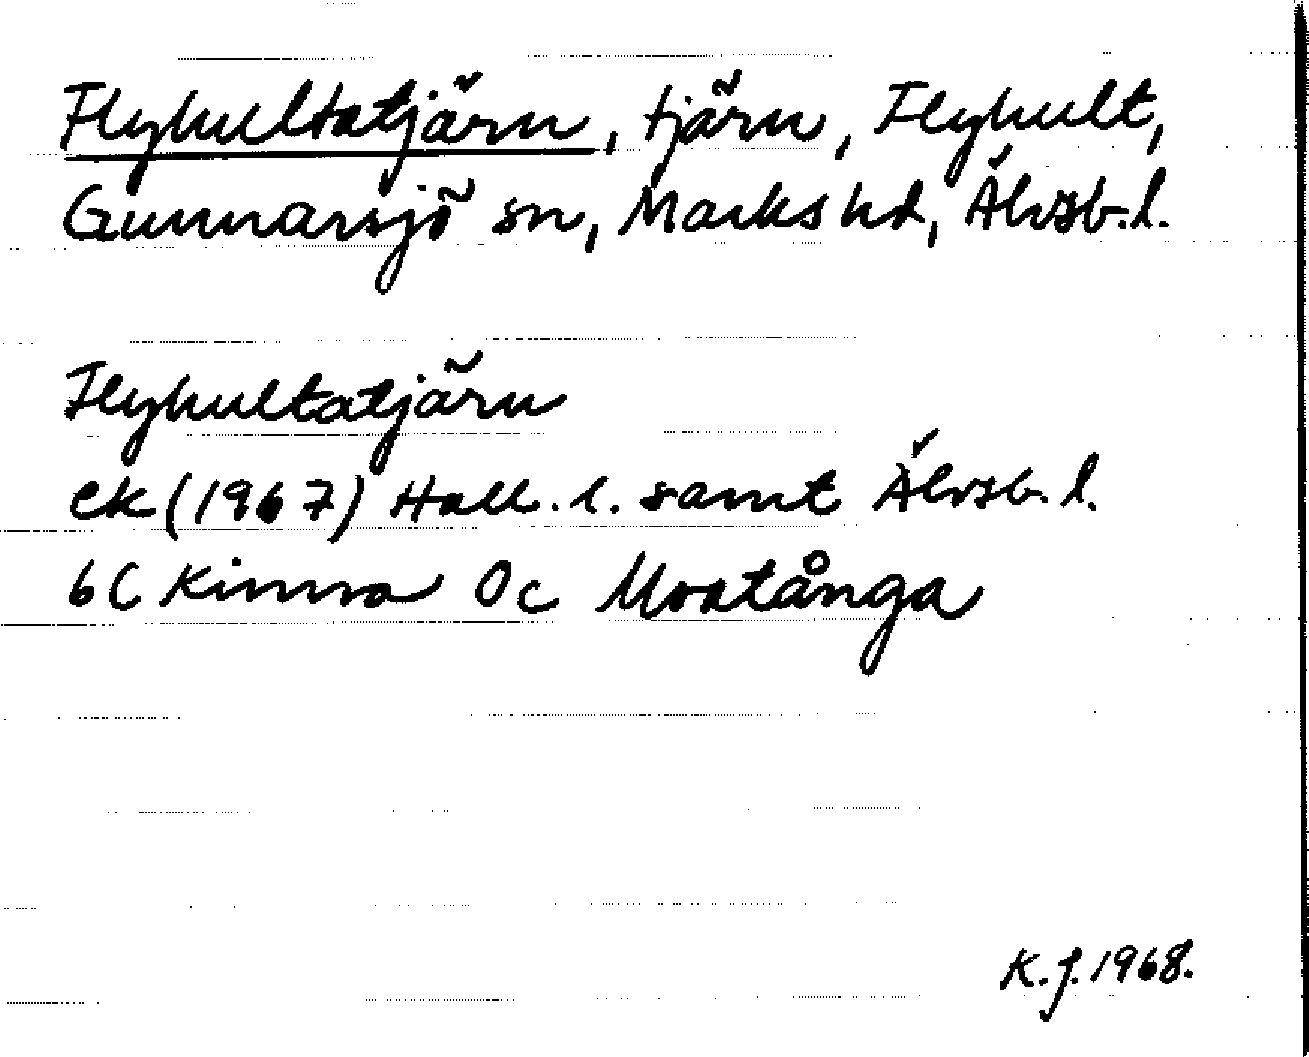 Flyhultatjärn, tjärn, Flyhult,
Gunnarsjö sn, Marks hd, Älvsb. l.
Flyhultatjärn
ek (1967) Hall. l. samt Älvsb. l.
6C Kinna 0c Mostånga
K.J. 1968.